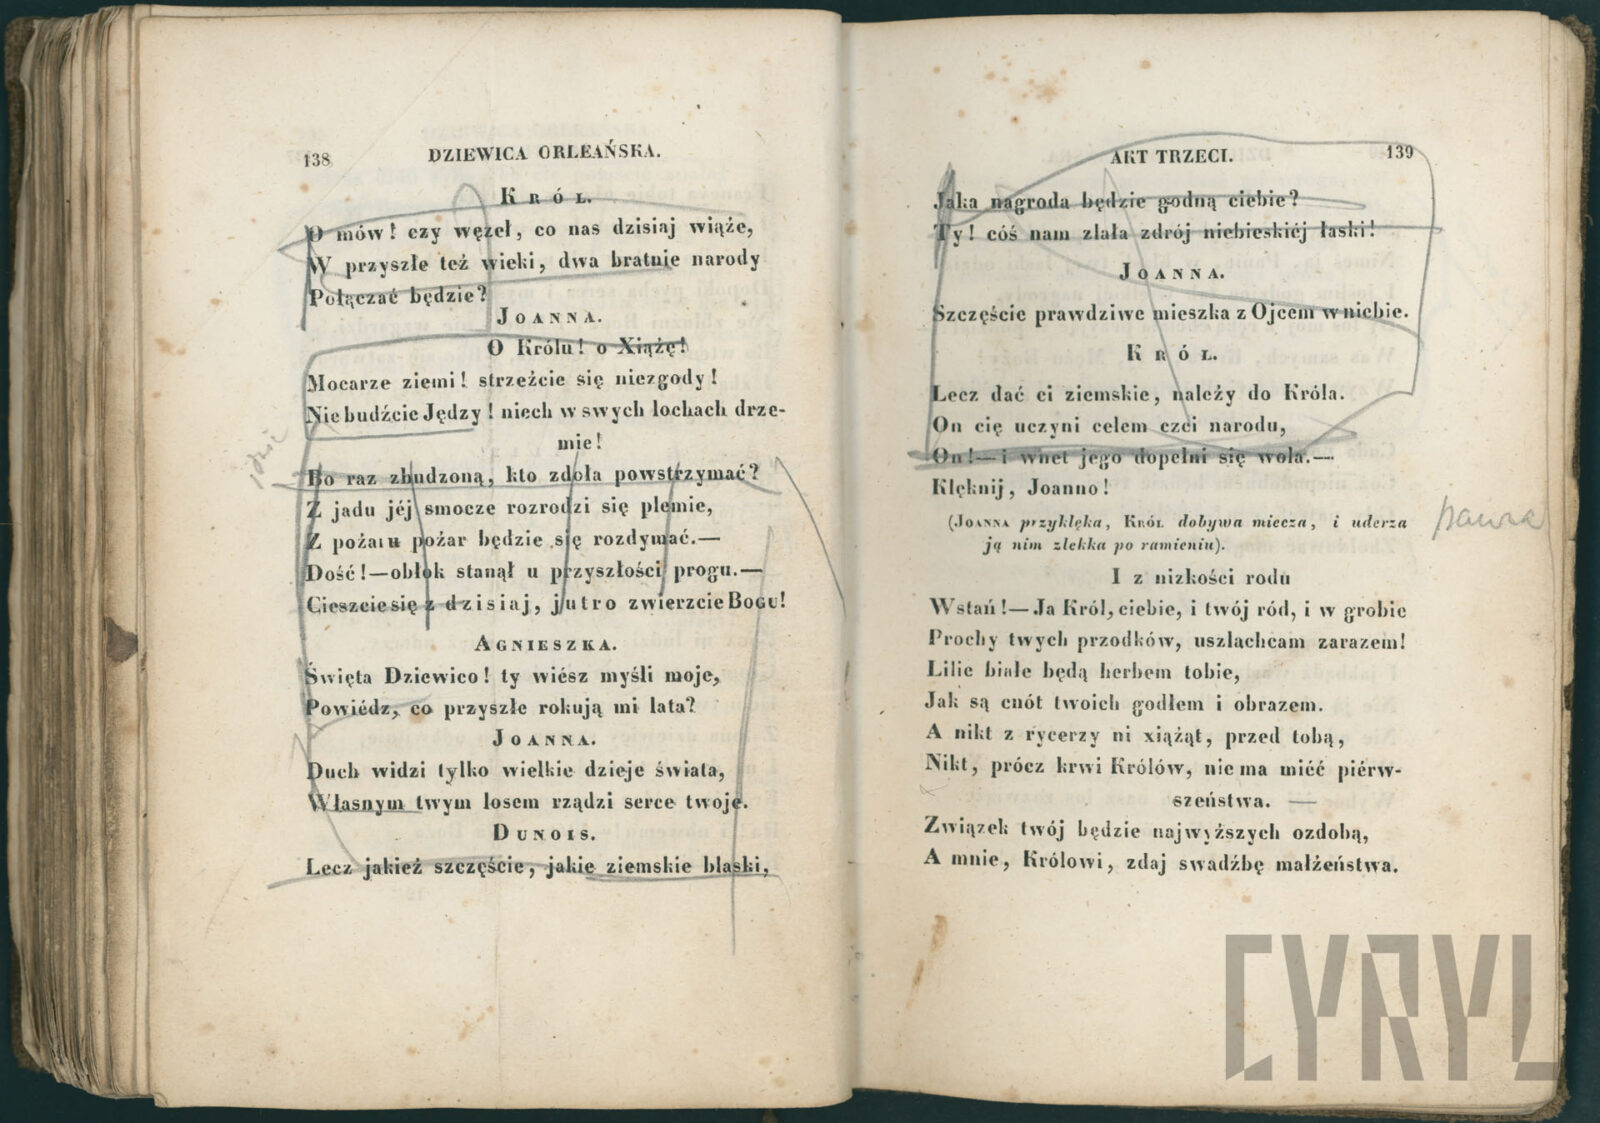 138 DZIEWICA ORLEAŃSKA.
KRÓL.
O mów! czy węzeł, co nas dzisiaj wiąże,
W przyszłe też wieki, dwa bratnie narody
Połączać będzie?
JOANNA.
O Królu! o Xiążę!
Mocarze ziemi! strzeżcie się niezgody!
Nie budźcie Jędzy! niech w swych lochach drze-
mie!
Bo raz zbudzoną, kto zdoła powstrzymać?
Z jadu jéj smocze rozrodzi się plemie,
Z pożaru pożar będzie się rozdymać.—
Dość!—obłok stanął u przyszłości progu.—
Cieszcie się z dzisiaj, jutro zwierzcie BOGU!
AGNIESZKA.
Święta Dziewico! ty wiész myśli moje,
Powiédz, co przyszłe rokują mi lata?
JOANNA.
Duch widzi tylko wielkie dzieje świata,
Własnym twym losem rządzi serce twoje.
DUNOIS.
Lecz jakież szczęście, jakie ziemskie blaski,
AKT TRZECI. 139
Jaka nagroda będzie godną ciebie?
Ty! cóś nam zlała zdrój niebieskiéj łaski!
JOANNA.
Szczęście prawdziwe mieszka z Ojcem w niebie.
KRÓL.
Lecz dać ci ziemskie, należy do Króla.
On cię uczyni celem czci narodu,
On!—i wnet jego dopełni się wola.—
Klęknij, Joanno!
(JOANNA przyklęka, KRÓL dobywa miecza, i uderza
ją nim zlekka po ramieniu).
pauza
I z nizkości rodu
Wstań!—Ja Król, ciebie, i twój ród, i w grobie
Prochy twych przodków, uszlachcam zarazem!
Lilie białe będą herbem tobie,
Jak są cnót twoich godłem i obrazem.
A nikt z rycerzy ni xiążąt, przed tobą,
Nikt, prócz krwi Królów, nie ma miéć piérw-
szeństwa. —
Związek twój będzie najwyższych ozdobą,
A mnie, Królowi, zdaj swadźbę małżeństwa.
CYRYL